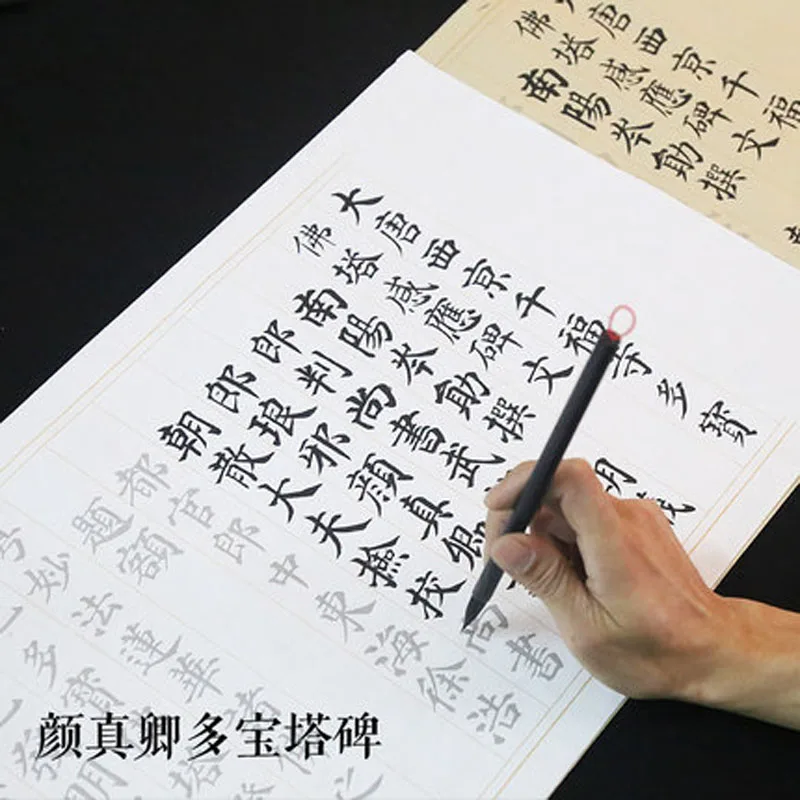 唐西京千福
佛塔感應碑文
南陽岑勛撰
大唐西京千福寺多寶
佛塔感應碑文
南陽岑勛撰
郎判尚書武
郎琅邪顏真卿
朝散大夫撿校尚書
都官郎中東海徐浩
題額
妙法蓮華諸
多寶
颜真卿多宝塔碑